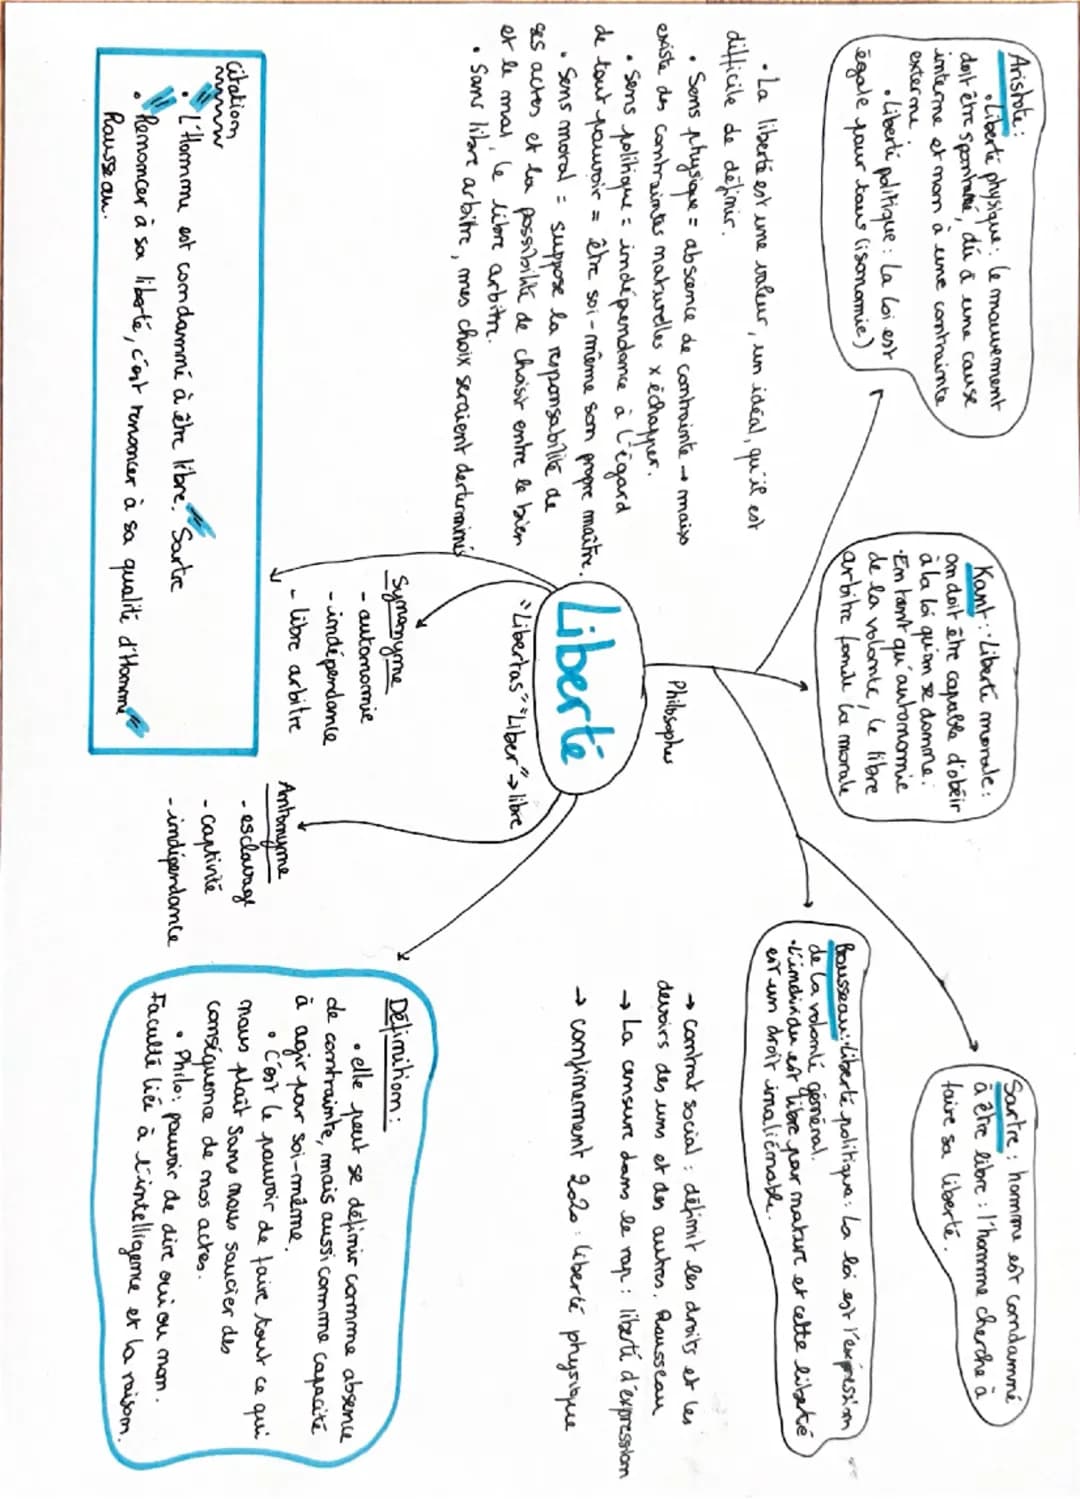 Aristote :
• Liberté physique : le mouvement
doit être spontané, dû à une cause
interne et non à une contrainte
externe.
• Liberté politique : La loi est
égale pour tous (isonomie)
Kant : • Liberté morale :
on doit être capable d'obéir
à la loi qu'on se donne.
• En tant qu'autonomie
de la volonté, le libre
arbitre fonde la morale
Sartre : homme est condamné
à être libre : l'homme cherche à
faire sa liberté.
Rousseau : Liberté politique : La loi est l'expression
de la volonté général.
• L'individu est libre par nature et cette liberté
est un droit inaliénable.
• La liberté est une valeur, un idéal, qu'il est
difficile de définir.
• Sens physique = absence de contrainte → mais
existe des contraintes naturelles x échapper.
• Sens politique = indépendance à l'égard
de tout pouvoir = être soi-même son propre maître.
• Sens moral = suppose la responsabilité de
ses actes et la possibilité de choisir entre le bien
et le mal, le libre arbitre.
• Sans libre arbitre, mes choix seraient derterminés
Philosophes
Liberté
"Libertas" "Liber" → libre
→ contrat social : définit les droits et les
devoirs des uns et des autres. Rousseau
→ La censure dans le rap : liberté d'expression
→ confinement 2020 : liberté physique
Synonyme
- autonomie
- indépendance
- libre arbitre
Antonyme
- esclavage
- captivité
- indépendance
Définition :
• elle peut se définir comme absence
de contrainte, mais aussi comme capacité
à agir par soi-même.
• C'est le pouvoir de faire tout ce qui
nous plaît sans nous soucier des
conséquence de nos actes.
• Philo : pouvoir de dire oui ou non.
Faculté liée à l'intelligence et la raison.
Citation
• "L'Homme est condamné à être libre." Sartre
• "Renoncer à sa liberté, c'est renoncer à sa qualité d'Homme"
Rousseau.